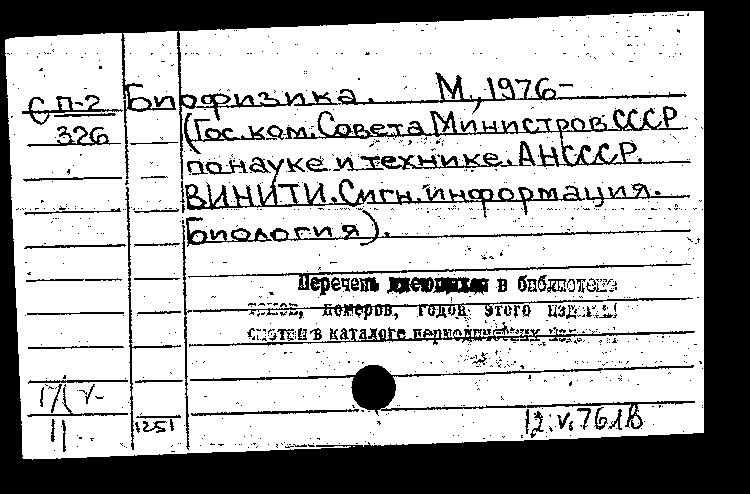 СП-2 Биофизика. М., 1976-
326 (Гос. ком. Совета Министров СССР
по науке и технике. АН СССР.
ВИНИТИ. Сигн. информация.
Биология).
Перечень имеющихся в библиотеке
томов, номеров, годов этого
смотри в каталоге периодических
1251 12.V.76